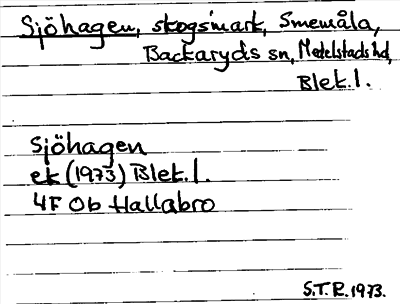 Sjöhagen, skogsmark, Smemåla,
Backaryds sn, Medelstads hd,
Blek.l.
Sjöhagen
ek (1973) Blek.l.
4F Ob Hallabro
S.T.R. 1973.